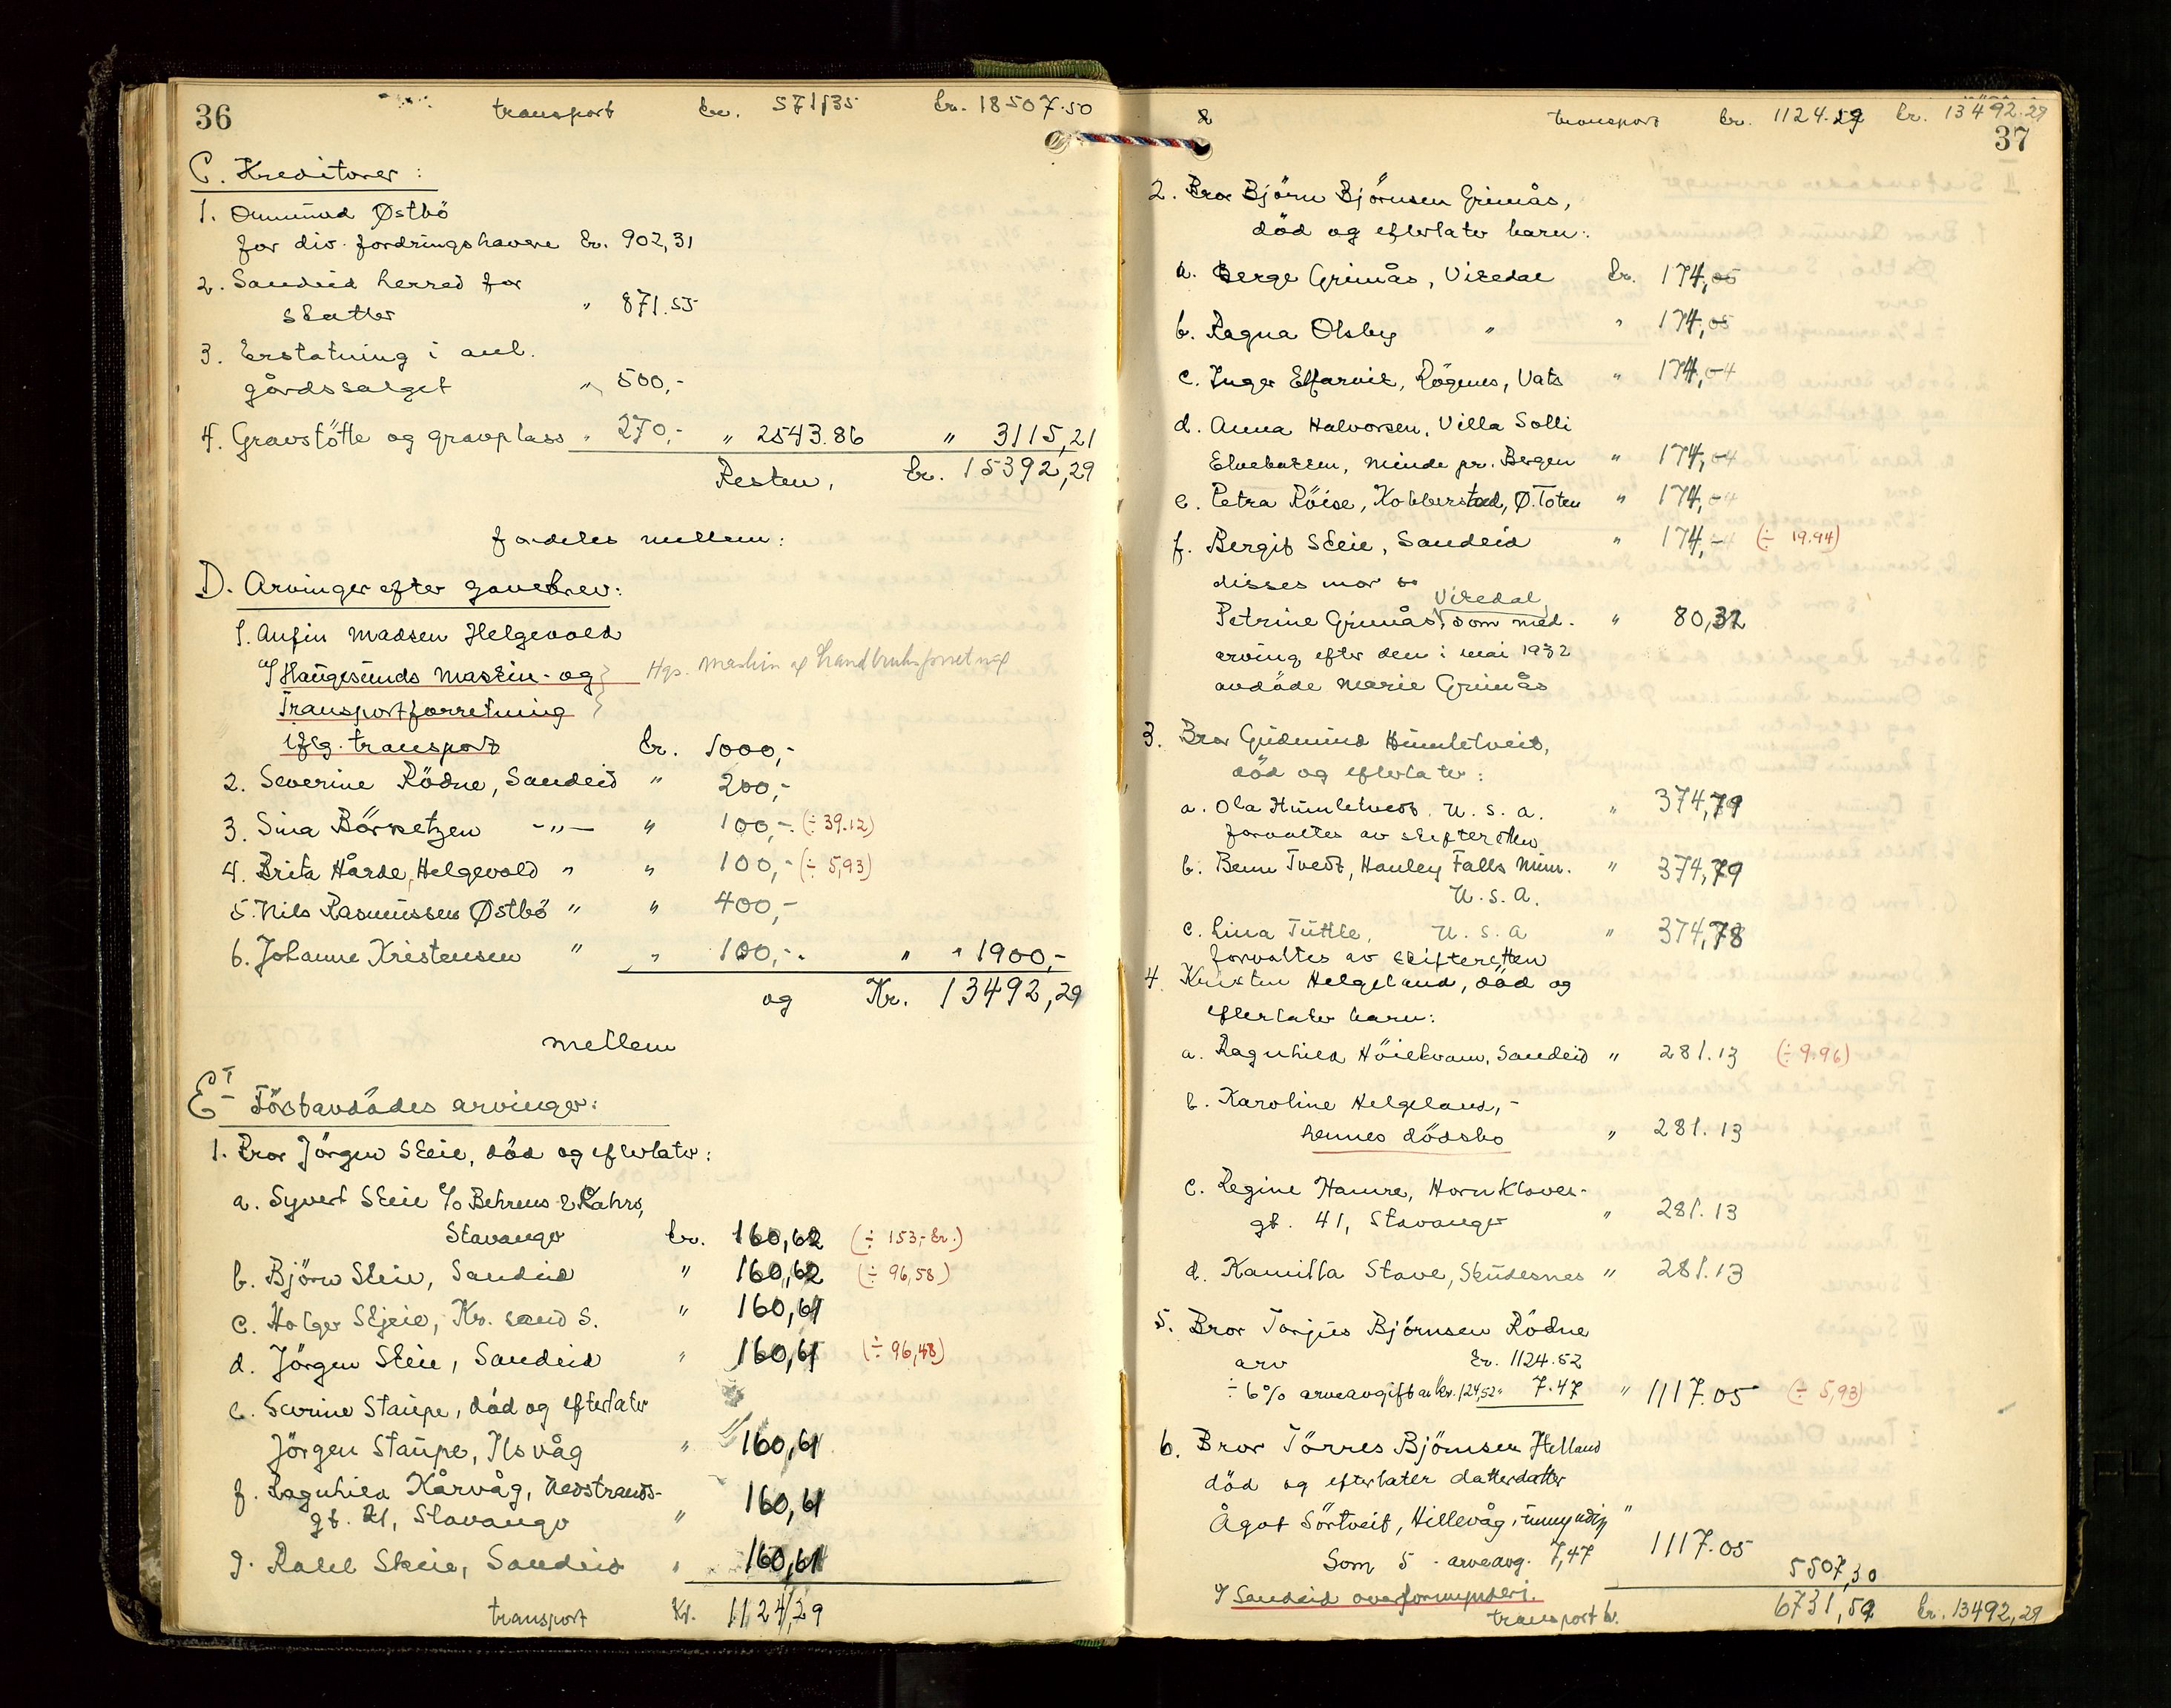 36
transport kr. 571,35 kr. 18507.50
C. Kreditorer:
1. Ommund Østbö
for div. fordringshavere kr. 902,31
2. Sandeid herred for
skatter " 871.55
3. Erstatning i anl.
gårdssalget " 500,-
4. Gravstötte og gravplass " 270,- " 2543.86 " 3115,21
Resten, kr. 15392,29
fordeles mellem:
D. Arvinger efter gavebrev:
1. Anfin Madsen Helgevold
c/o Haugesunds Maskin- og } Hgs. Maskin og Landbruksforretning
Transportforretning }
iflg. transport kr. 1000,-
2. Severine Rödne, Sandeid " 200,-
3. Sina Börretzen -"- " 100,- (÷ 39.12)
4. Brita Hårde, Helgevold " " 100,- (÷ 5,93)
5. Nils Rasmussen Østbö " " 400,-
6. Johanne Kristensen " " 100,-. " " 1900,-
og Kr. 13492,29
mellem
E I Förstavdödes arvinger:
1. Bror Jörgen Skeie, död og efterlater:
a. Syvert Skeie c/o Behrens & Rahrs,
Stavanger kr. 160,62 (÷ 153,- kr.)
b. Björn Skeie, Sandeid " 160,62 (÷ 96,58)
c. Holger Skjeie, Kr.sand S. " 160,61
d. Jörgen Skeie, Sandeid " 160,61 (÷ 96,48)
e. Serine Staupe, död og efterlater
Jörgen Staupe, Ilsvåg " 160,61
f. Ragnhild Kårvåg, Nedstrands-
gt. 21, Stavanger " 160,61
g. Rakel Skeie, Sandeid " 160,61
transport Kr. 1124,29
transport kr. 1124.29 kr. 13492.29
37
2. Bror Björn Björnsen Grimås,
död og efterlater barn:
a. Berge Grimås, Vikedal kr. 174,05
b. Ragna Olsby " " 174,05
c. Inger Elfarvik, Rögenes, Vats " 174,04
d. Anna Halvorsen, Villa Solli
Elvebakken, Minde pr. Bergen " 174,04
e. Petra Röise, Kobberstad, Ø. Toten " 174,04
f. Bergit Skeie, Sandeid " 174,04 (÷ 19.94)
disses mor
Vikedal
Petrine Grimås, som med- " 80,32
arving efter den i mai 1932
avdöde Marie Grimås
3. Bror Gudmund Humletveit,
död og efterlater:
a. Ola Humletveit, U.S.A. " 374,79
forvaltes av skifteretten
b. Benn Tvedt, Hanley Falls Minn. " 374,79
U.S.A.
c. Lina Tuttle, U.S.A " 374,78
forvaltes av skifteretten
4. Kristen Helgeland, död og
efterlater barn:
a. Ragnhild Höiekvam, Sandeid " 281.13 (÷ 9.96)
b. Karoline Helgeland, -
hennes dödsbo " 281.13
c. Regine Hamre, Hornklöves-
gt. 41, Stavanger " 281.13
d. Kamilla Stave, Skudesnes " 281.13
5. Bror Torjus Björnsen Rödne
arv kr. 1124.52
÷ 6% arveavgift av kr. 124,52 " 7.47 " 1117.05 (÷ 5,93)
6. Bror Törres Björnsen Helland
död og efterlater datterdatter
Ågot Sörtveit, Hillevåg, umyndig "
Som 5 - arveavg. 7,47 1117.05 5507,30
c/o Sandeid overformynderi.
transport kr. 6731,59 kr. 13492,29